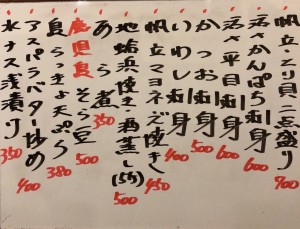 帆立・とり貝二点盛り 900
活〆かんぱち刺身 600
活〆平目刺身 600
かつお刺身 500
いわし刺身 400
帆立マヨネーズ焼き 450
地蛤浜焼き・酒蒸し(5ケ) 500
あら煮 350
鹿児島そら豆 500
島らっきょ天ぷら 380
アスパラバター炒め 400
水ナス浅漬け 350